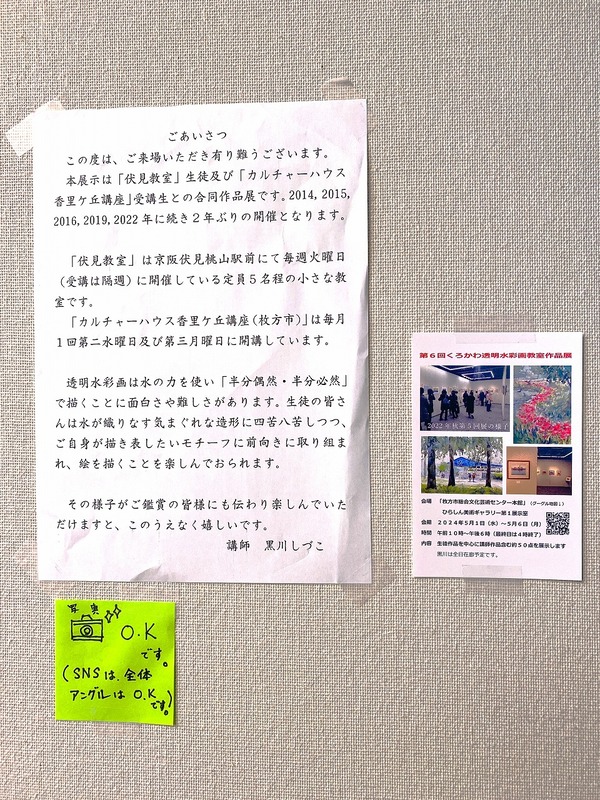 ごあいさつ
この度は、ご来場いただき有り難うございます。
本展示は「伏見教室」生徒及び「カルチャーハウス
香里ケ丘講座」受講生との合同作品展です。2014, 2015,
2016, 2019, 2022 年に続き２年ぶりの開催となります。
「伏見教室」は京阪伏見桃山駅前にて毎週火曜日
（受講は隔週）に開催している定員５名程の小さな教
室です。
「カルチャーハウス香里ケ丘講座（枚方市）」は毎月
１回第二水曜日及び第三月曜日に開講しています。
透明水彩画は水の力を使い「半分偶然・半分必然」
で描くことに面白さや難しさがあります。生徒の皆さ
んは水が織りなす気まぐれな造形に四苦八苦しつつ、
ご自身が描き表したいモチーフに前向きに取り組ま
れ、絵を描くことを楽しんでおられます。
その様子がご鑑賞の皆様にも伝わり楽しんでいた
だけますと、このうえなく嬉しいです。
講師　黒川しづこ
第６回くろかわ透明水彩画教室作品展
2022年秋第５回展の様子
会場　「枚方市総合文化芸術センター本館」（グーグル地図↓）
ひらしん美術ギャラリー第１展示室
会期　２０２４年５月１日（水）～５月６日（月）
時間　午前１０時～午後６時（最終日は４時終了）
内容　生徒作品を中心に講師作品含む約５０点を展示します
黒川は全日在廊予定です。
写真
O.K
です。
（SNSは、全体
アングルは O.K
です。）